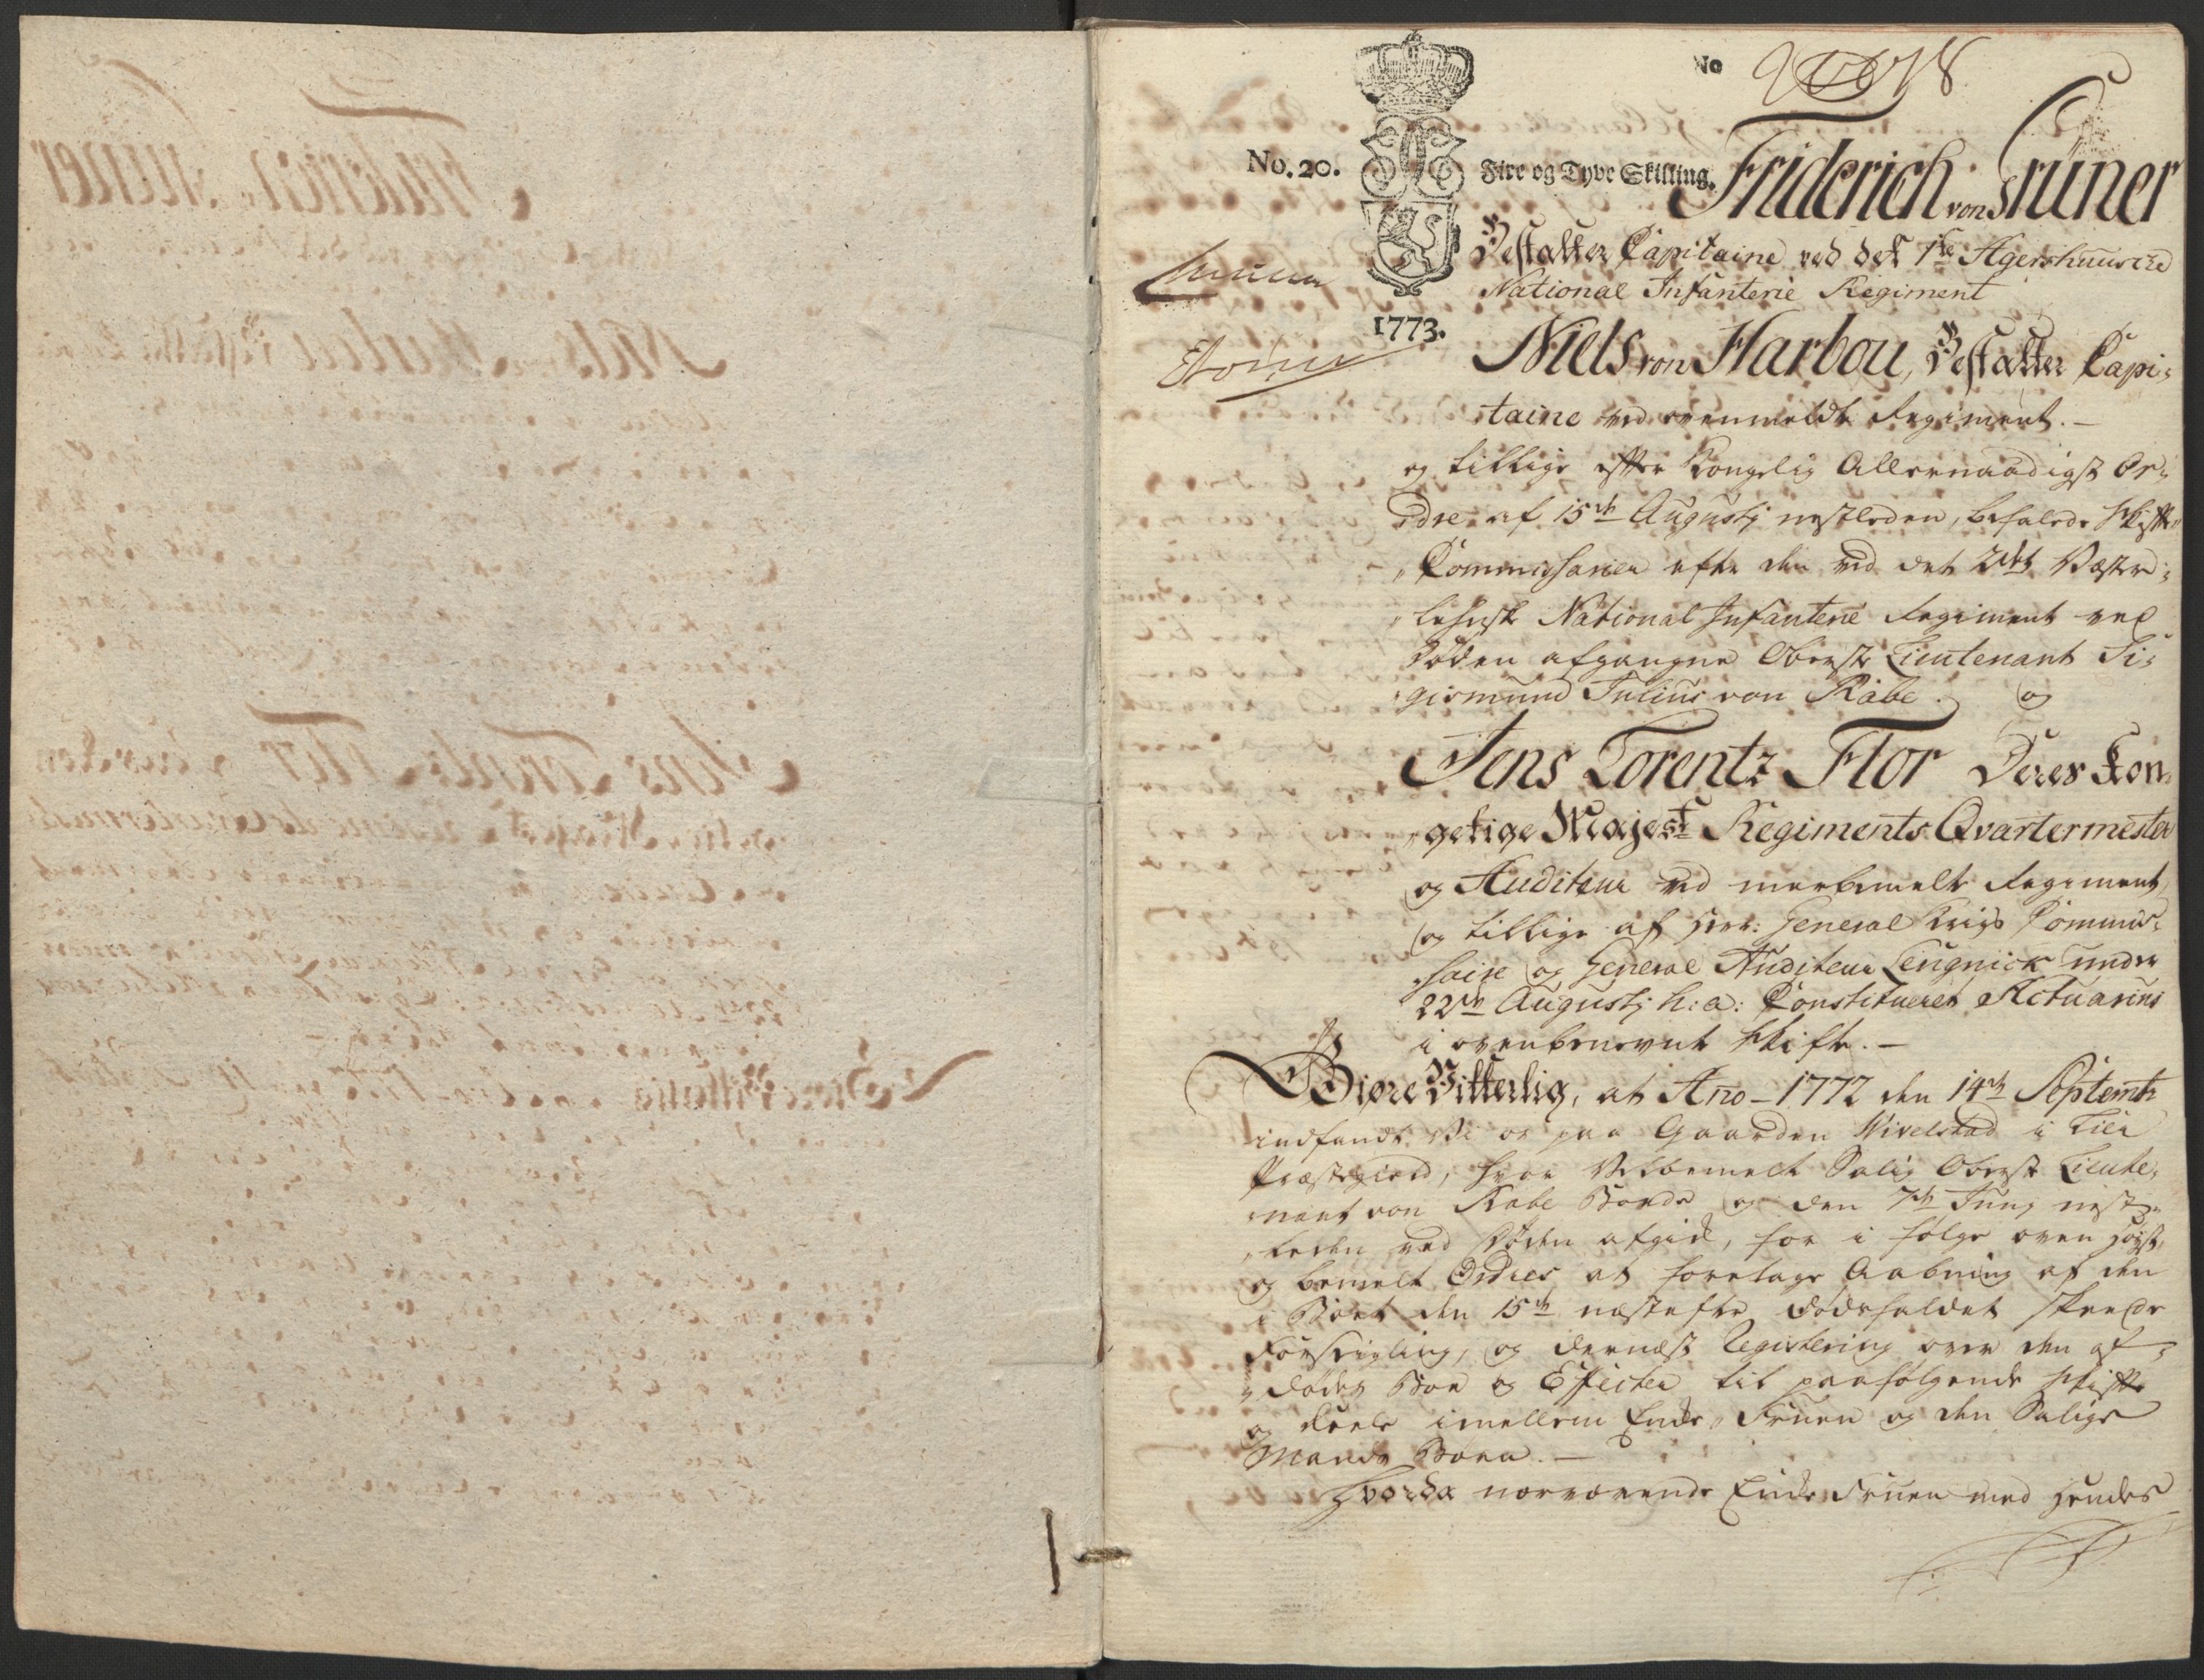 No
No. 20.
Fire og Tyve Skilling.
1773.
Friderich von Grüner
Bestalter Capitaine ved det 1ste Agershuusiske
National Infanterie Regiment
Niels von Harbou, Bestalter Capi=
taine ved ovenmeldte Regiment. —
og tillige efter Kongelig Allernaadigst Or=
dre af 15de Augustj nestleden, befalede Skifte
Commissarier efter den ved det 2det Vester=
lehnske National Infanterie Regiment ved
Døden afgangne Oberste Lieutenant Si=
gismund Julius von Rabe. og
Jens Lorentz Flor Deres Kon=
gelige Majestt Regiments Qvartermester
og Auditeur ved meerbemelte Regiment,
og tillige af Herr: General Krigs Commis=
saire og General Auditeur Lengnick under
22de Augustj h: a: Constitueret Actuarius
i ovenbenevnte Skifte. —
Giøre Vitterlig, at Ano 1772 den 14de Septembr
indfandt Vi os paa Gaarden Nivelstad i Lier
Præstegield, hvor Velbemelte Salig Oberst Lieute=
nant von Rabe Boede og den 7de Junj nest=
leden ved Døden afgik, for i følge oven høyst,
og bemelte Ordres at foretage Aabning af den
i Boet den 15de næstefter Dødsfaldet skeede
Forseigling, og dernæst Registering over den af=
dødes Boe og Effecter til paafølgende Skifte
og Deele imellem Enke Fruen og den Salige
Mands Børn. —
Hvorda nærværende Enke Fruen med hendes